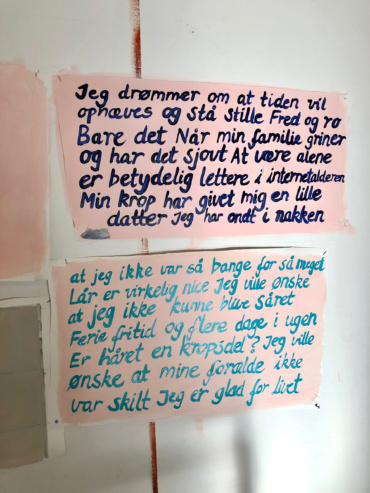 Jeg drømmer om at tiden vil
ophæves og stå stille Fred og ro
Bare det Når min familie griner
og har det sjovt At være alene
er betydelig lettere i internetalderen
Min krop har givet mig en lille
datter Jeg har ondt i nakken
at jeg ikke var så bange for så meget
Lår er virkelig nice Jeg ville ønske
at jeg ikke kunne blive såret
Ferie fritid og flere dage i ugen
Er håret en kropsdel? Jeg ville
ønske at mine forælde ikke
var skilt Jeg er glad for livet